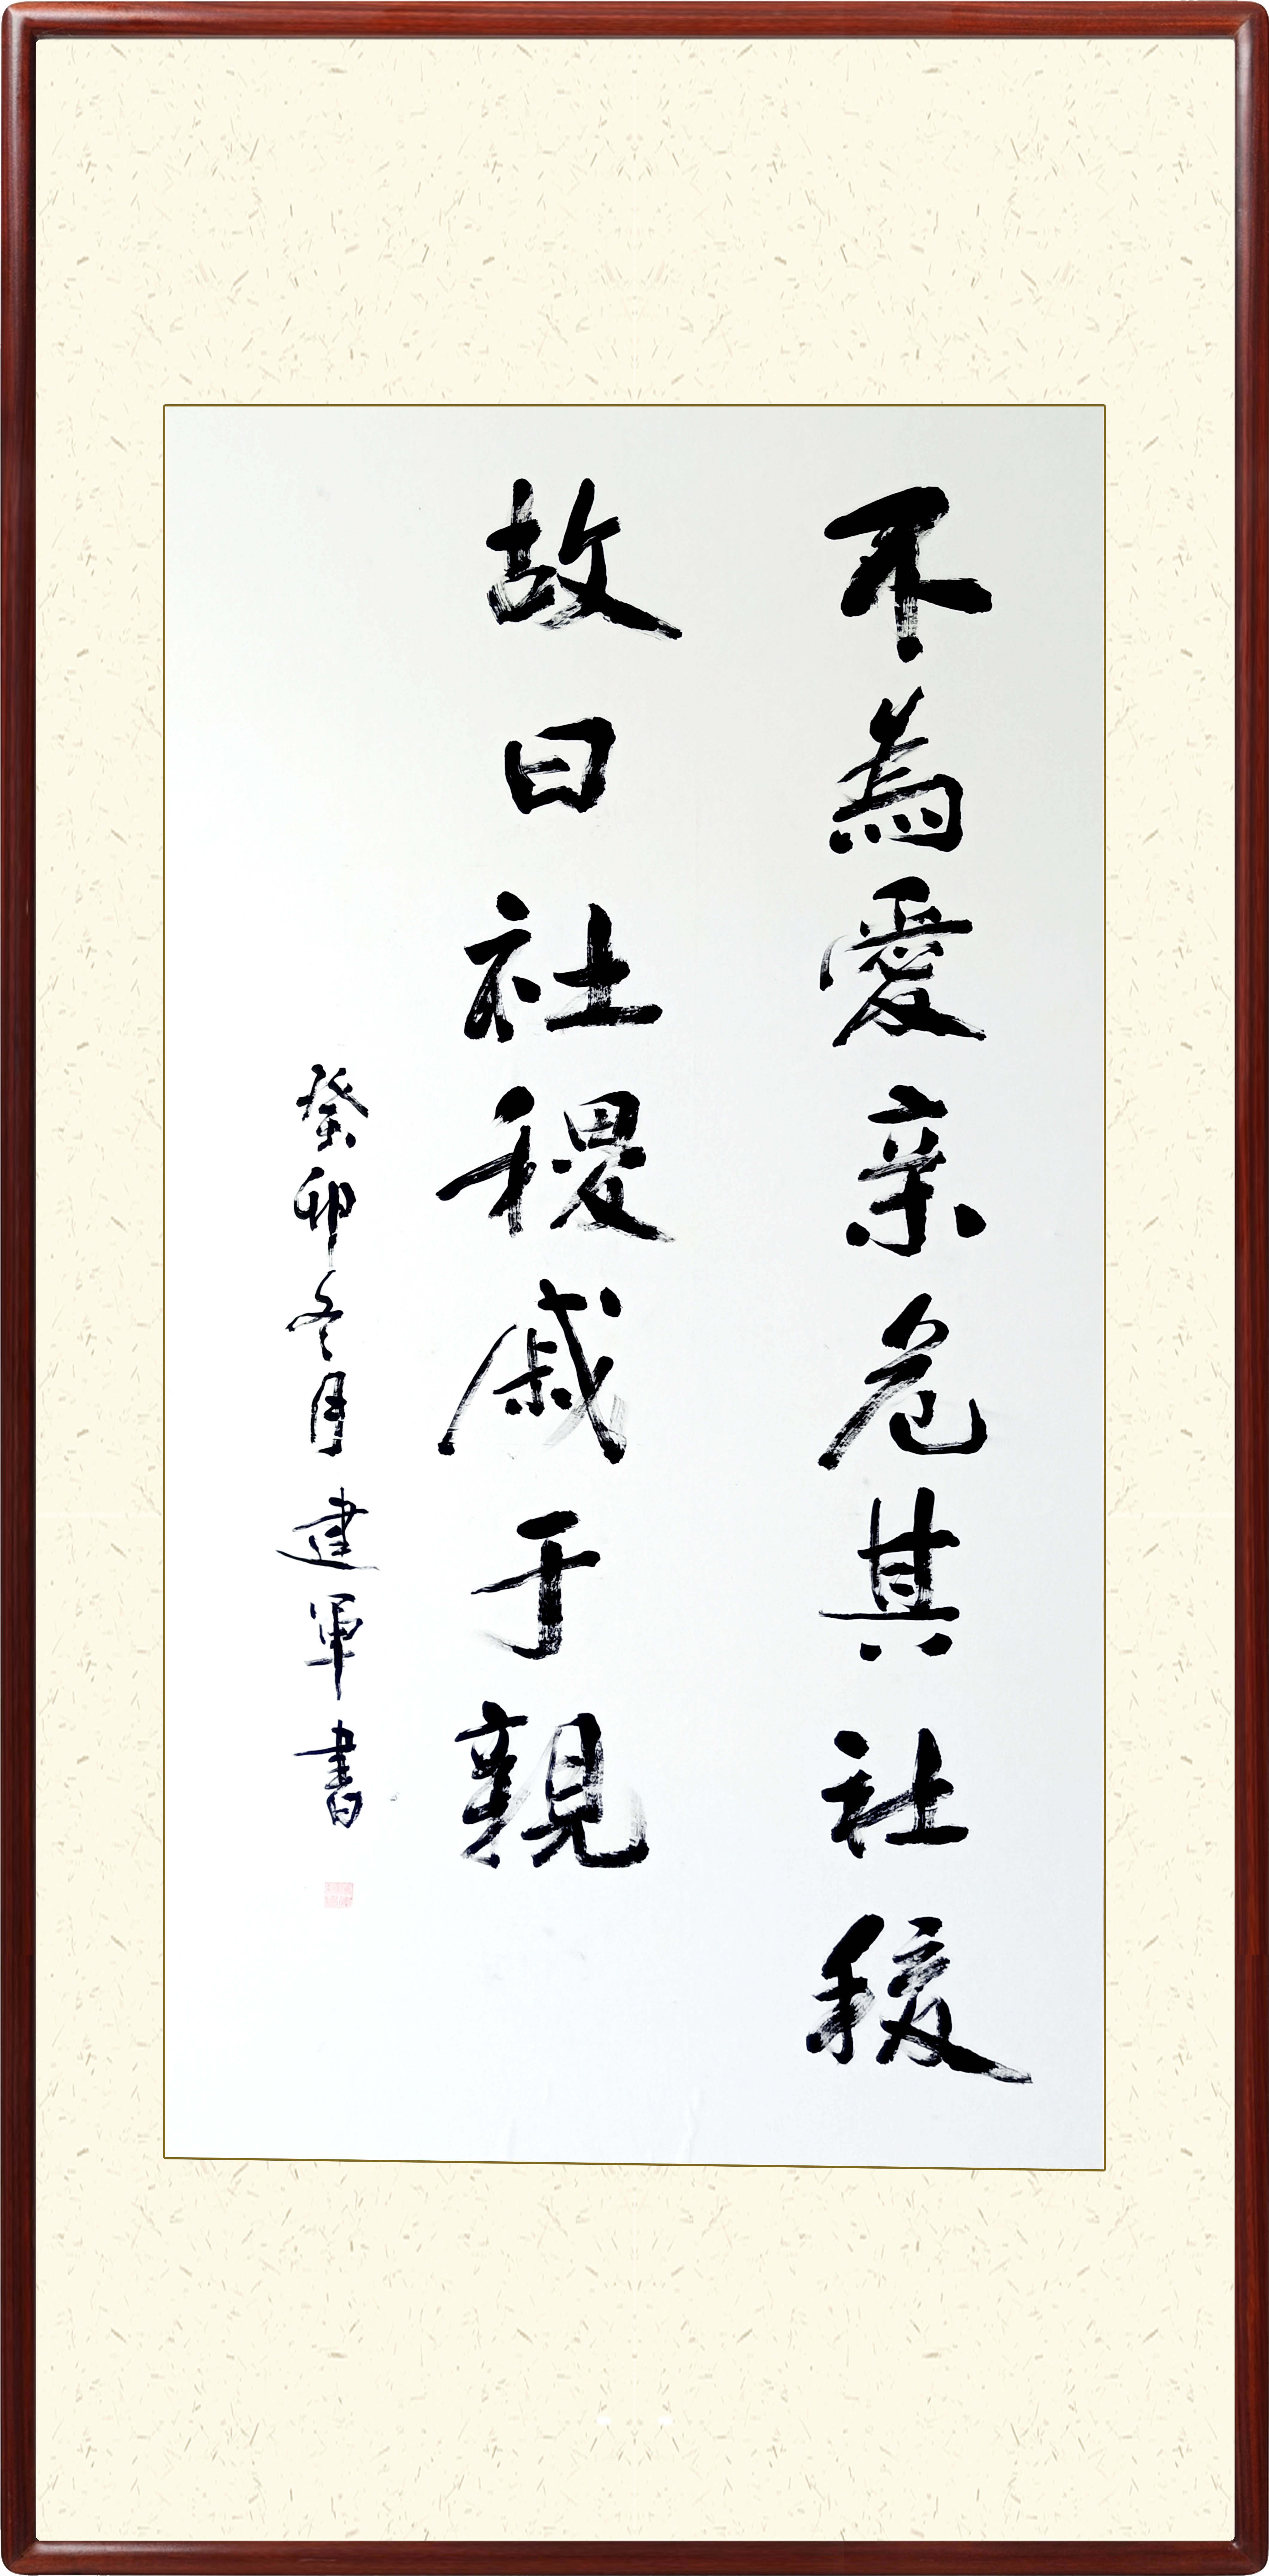 不為愛亲危其社稷
故曰社稷戚于親
癸卯冬月建軍書